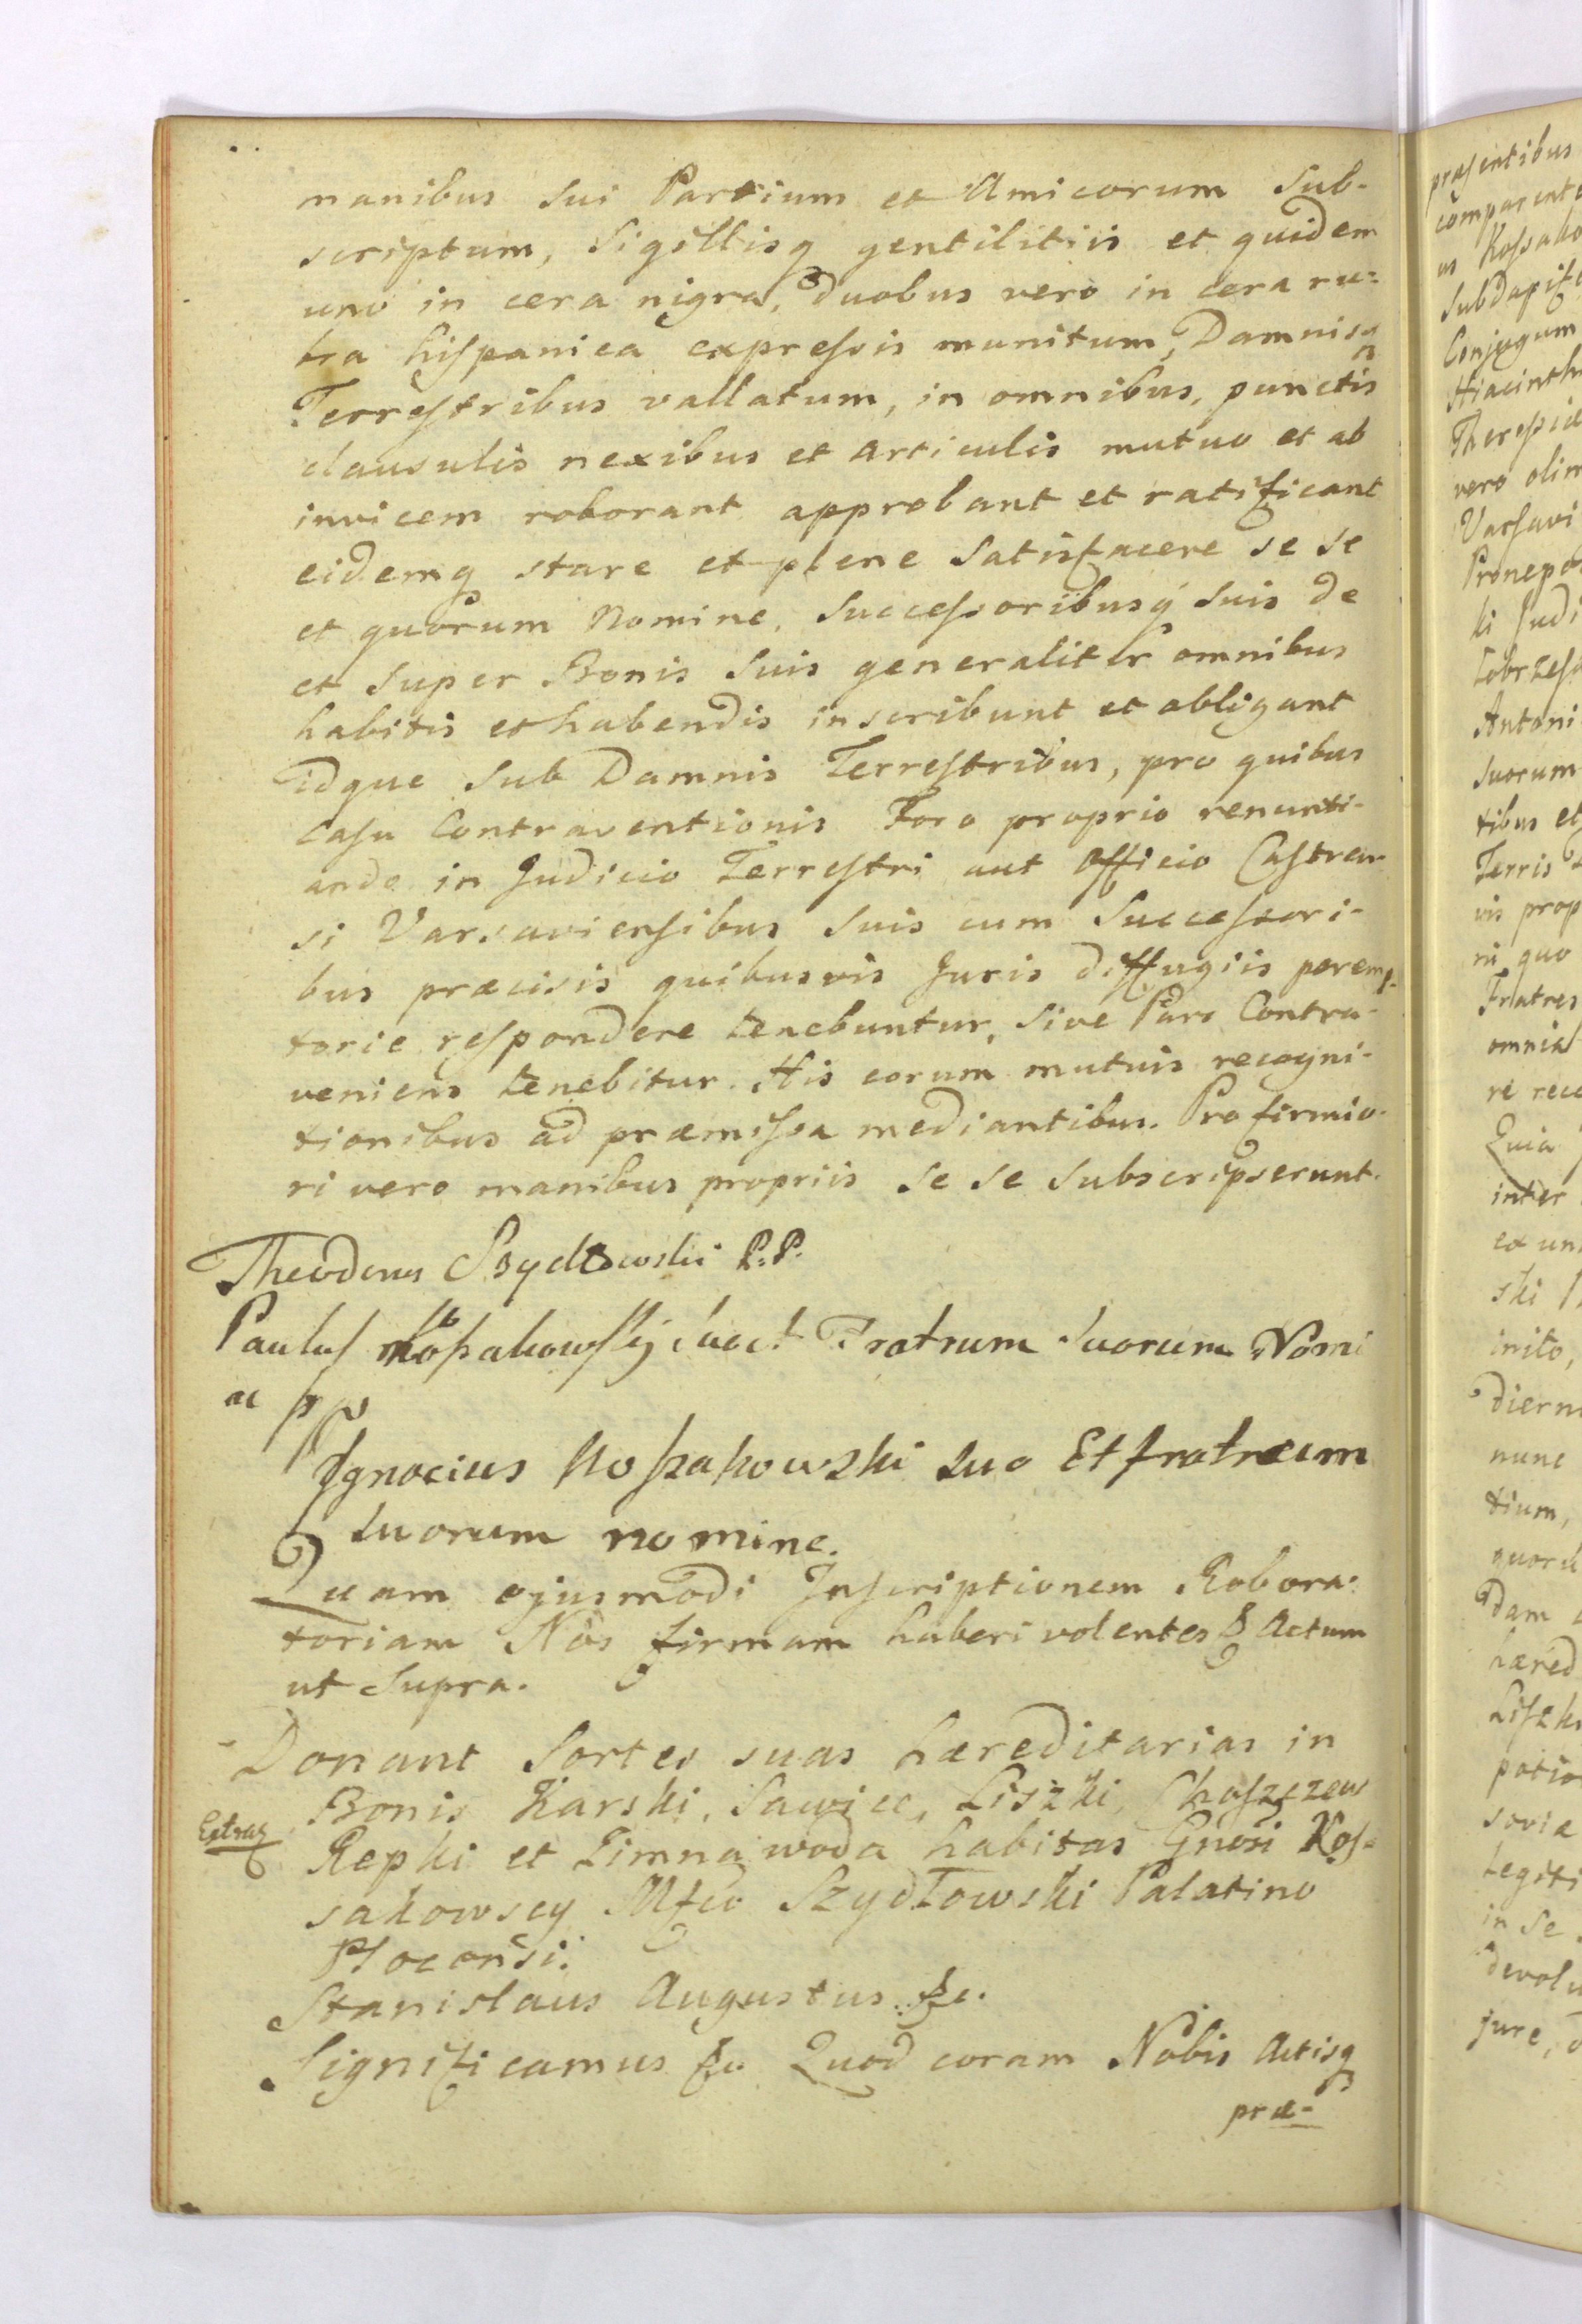 manibus sui Partium et Amicorum Sub-
scriptum, Sigillisq gentilitiis et quidem
uno in cera nigra, duobus vero in cera ru=
bra hispanica expressis munitum, Damnisq
Terrestribus vallatum, in omnibus, punctis
clausulis nexibus et articulis mutuo et ab
invicem roborant approbant et ratificant
eidemq stare et plene Satisfacere se se
et quorum Nomine, Successoribusq Suis de
et Super Bonis Suis generaliter omnibus
habitis et habendis inscribunt et obligant
idque Sub Damnis Terrestribus, pro quibus
Casu Contraventionis Foro proprio renunti-
ando in Judicio Terrestri aut Officio Castren-
si Varsaviensibus Suis cum Successori-
bus præcisis quibusvis Juris diffugiis peremp-
torie respondere tenebuntur, Sive Pars Contra-
veniens tenebitur. His eorum mutuis recogni-
tionibus ad præmissa mediantibus. Pro firmio-
ri vero manibus propriis Se Se Subscripserunt.
Theodorus Szydłowski P.P.
Paulus Kossakowsky Suo et Fratrum Suorum Nomi
ne
Ignacius Kossakowski Suo Et fratrum
Suorum nomine.
Quam ejusmodi Inscriptionem Robora-
toriam Nos firmam haberi volentes & Actum
ut Supra.
Donant Sortes suas hæreditarias in
Bonis Karski, Sawiec, Liszki, Choszczew
Extrac
Repki et Zimna woda habitas Gnosi Kos=
sakowscy Mfco Szydłowski Palatino
Plocensi.
Stanislaus Augustus &c.
Significamus &c. Quod coram Nobis Actisq
præ-
præsentibus
comparent
Kossako
Subdapif
Conjugum
Hiacinth
vero olim
Varsavi
Pronepo
ki Judi
Antoni
Suorum
tibus et
Terris
vis prop
ni quo
Fratres
omnia
re reco
Quia
inter
ex un
ski
inito,
diern
nunc
tium,
quoru
dam
hæred
Liszk
potio
soviæ
Legiti
in Se
devolu
jure,